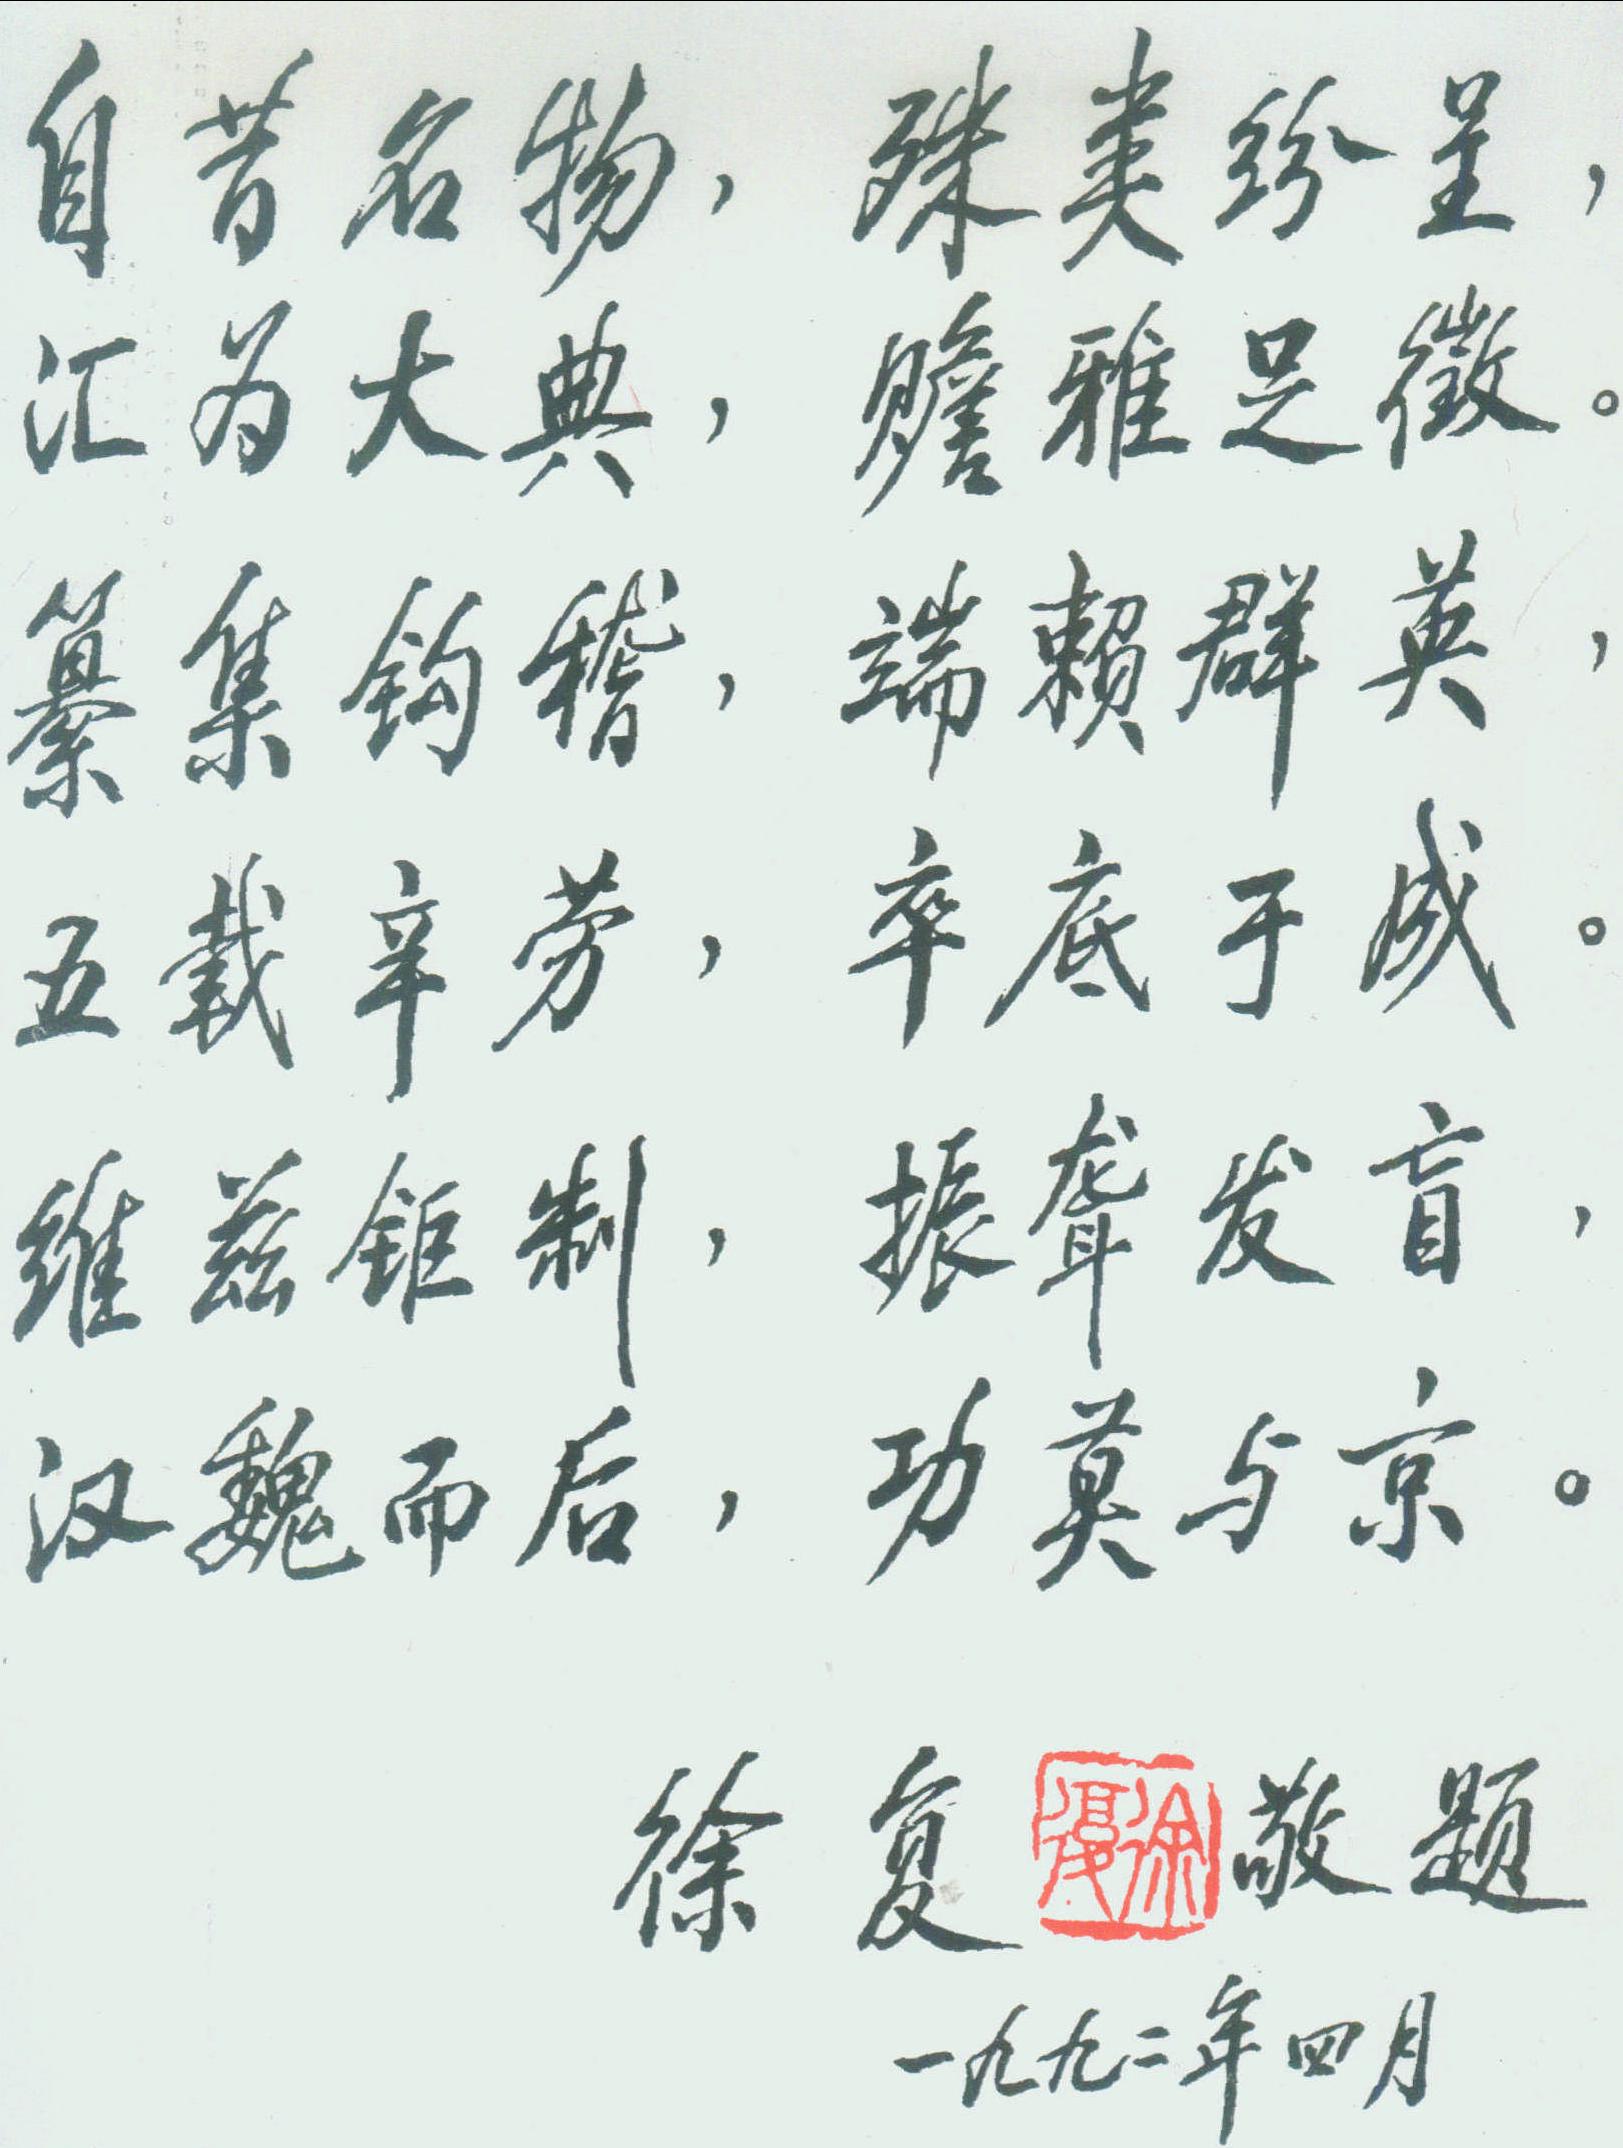 自昔名物，殊类纷呈，
汇为大典，赡雅足徵。
纂集钩稽，端赖群英，
五载辛劳，卒底于成。
维兹钜制，振聋发盲，
汉魏而后，功莫与京。
徐复 徐復 敬题
一九九二年四月